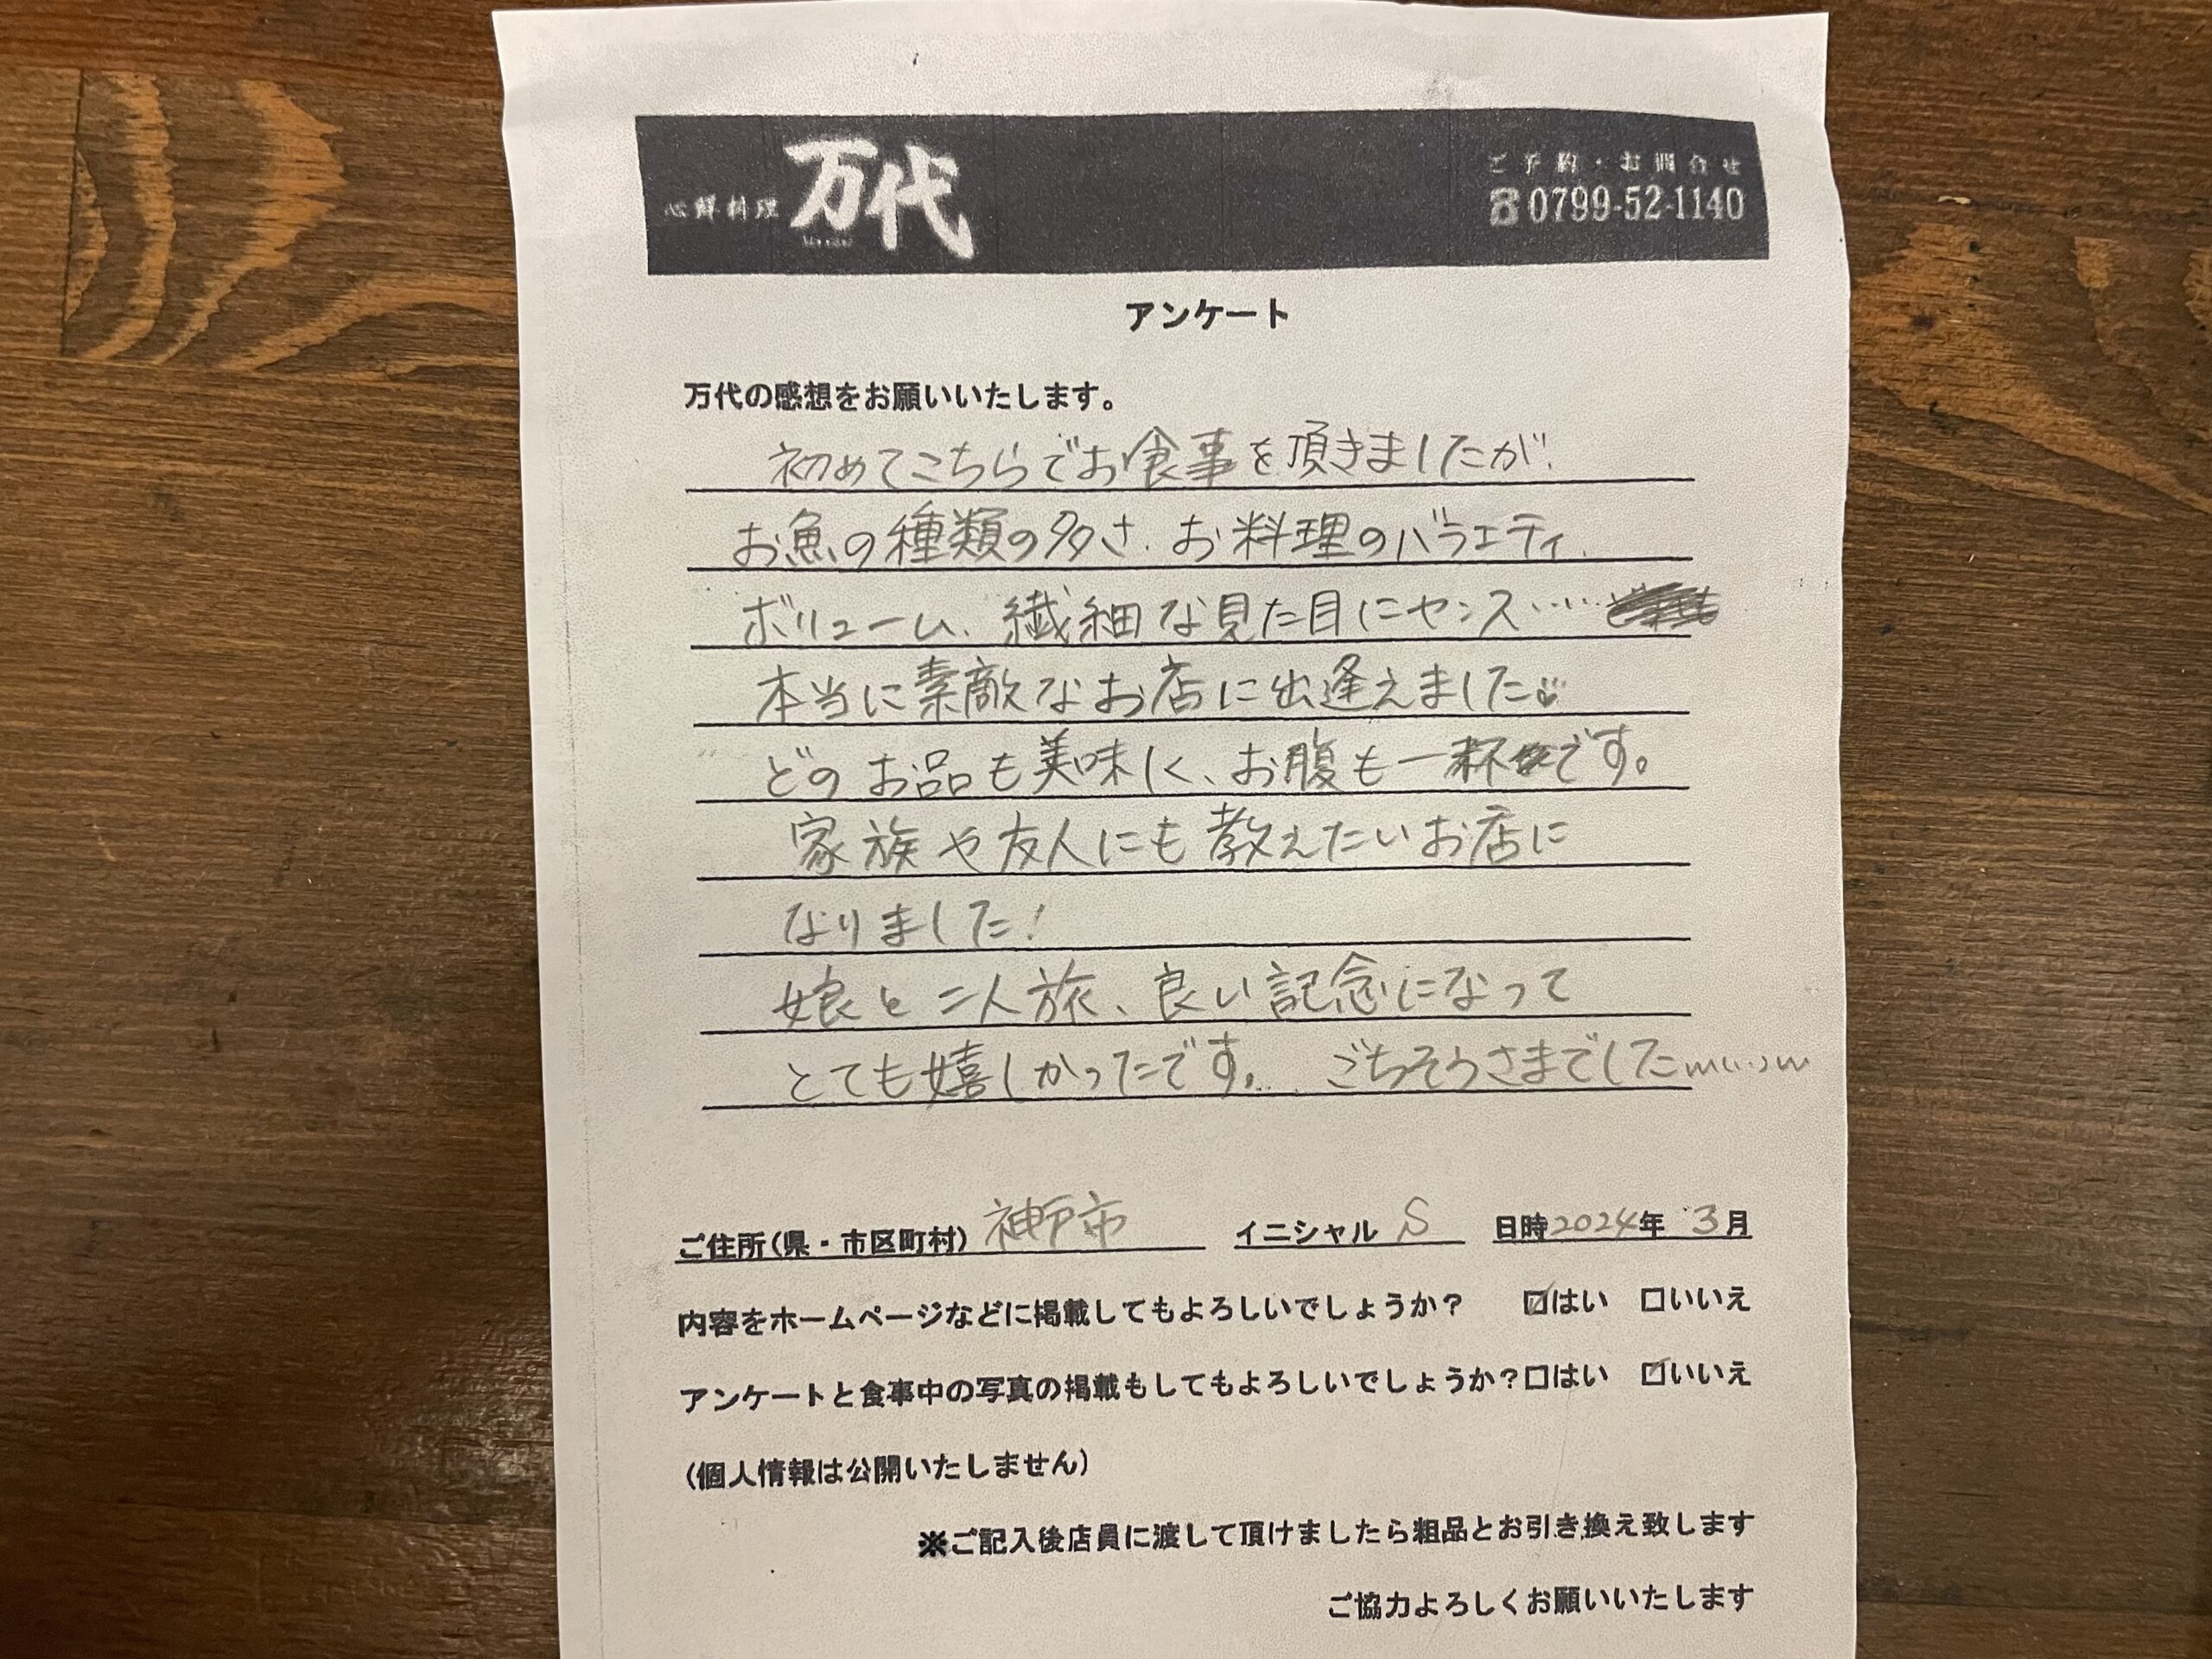 心鮮料理 万代
ご予約・お問合せ
☎0799-52-1140
アンケート
万代の感想をお願いいたします。
初めてこちらでお食事を頂きましたが、
お魚の種類の多さ、お料理のバラエティ、
ボリューム、繊細な見た目にセンス……
本当に素敵なお店に出逢えました
どのお品も美味しく、お腹も一杯です。
家族や友人にも教えたいお店に
なりました!
娘と二人旅、良い記念になって
とても嬉しかったです。 ごちそうさまでしたm(..)m
ご住所(県・市区町村) 神戸市 イニシャル S 日時2024年 3月
内容をホームページなどに掲載してもよろしいでしょうか? ☑はい □いいえ
アンケートと食事中の写真の掲載もしてもよろしいでしょうか?□はい ☑いいえ
(個人情報は公開いたしません)
※ご記入後店員に渡して頂けましたら粗品とお引き換え致します
ご協力よろしくお願いいたします